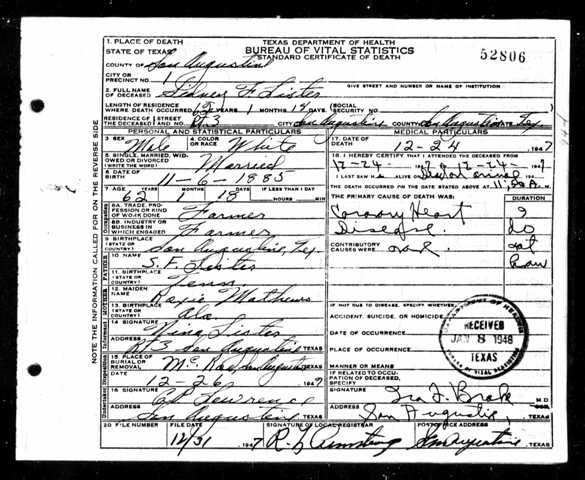 TEXAS DEPARTMENT OF HEALTH
BUREAU OF VITAL STATISTICS
STANDARD CERTIFICATE OF DEATH
52806
1. PLACE OF DEATH
STATE OF TEXAS
COUNTY OF San Augustine
CITY OR PRECINCT NO. 1
GIVE STREET AND NUMBER OR NAME OF INSTITUTION
2. FULL NAME OF DECEASED Sidney F Lister
LENGTH OF RESIDENCE WHERE DEATH OCCURRED 62 YEARS 1 MONTHS DAYS (SOCIAL SECURITY NO.
RESIDENCE OF THE DECEASED STREET AND NO. Rt 3 CITY San Augustine COUNTY San Augustine Tex.
PERSONAL AND STATISTICAL PARTICULARS
MEDICAL PARTICULARS
3 SEX Male
4 COLOR OR RACE White
17. DATE OF DEATH 12-24 1947
5 SINGLE, MARRIED, WIDOWED OR DIVORCED (WRITE THE WORD) Married
18. I HEREBY CERTIFY THAT I ATTENDED THE DECEASED FROM
12-24 1947 12-24 1947
6 DATE OF BIRTH 11-6-1885
I LAST SAW H ALIVE
THE DEATH OCCURRED ON THE DATE STATED ABOVE AT M.
7 AGE YEARS MONTHS DAYS IF LESS THAN 1 DAY
62 1 18 HOURS MIN
THE PRIMARY CAUSE OF DEATH WAS:
DURATION
8A. TRADE, PROFESSION OR KIND OF WORK DONE Farmer
Heart
8B. INDUSTRY OR BUSINESS IN WHICH ENGAGED Farmer
Disease
9 BIRTHPLACE (STATE OR COUNTRY) San Augustine, Tex.
CONTRIBUTORY CAUSES WERE
FATHER
10 NAME S. F. Lister
11. BIRTHPLACE (STATE OR COUNTRY) Tenn
MOTHER
12. MAIDEN NAME Mathews
13 BIRTHPLACE (STATE OR COUNTRY) Ala
IF NOT DUE TO DISEASE, SPECIFY WHETHER:
ACCIDENT, SUICIDE, OR HOMICIDE
DATE OF OCCURRENCE
Informant
14 SIGNATURE Nina Lister
ADDRESS Rt 3 San Augustine TEXAS
PLACE OF OCCURRENCE
MANNER OR MEANS
15 PLACE OF BURIAL OR REMOVAL San Augustine TEXAS
12-26 1947
IF RELATED TO OCCUPATION OF DECEASED, SPECIFY
Undertaker
16 SIGNATURE Lawrence
ADDRESS San Augustine TEXAS
SIGNATURE M.D.
ADDRESS San Augustine, TEXAS
20 FILE NUMBER
FILE DATE 12/31 1947
SIGNATURE OF LOCAL REGISTRAR R. L. Armstrong
POSTOFFICE ADDRESS San Augustine, TEXAS
DEPARTMENT OF HEALTH
RECEIVED
JAN 8 1948
TEXAS
BUREAU OF VITAL STATISTICS
NOTE THE INFORMATION CALLED FOR ON THE REVERSE SIDE